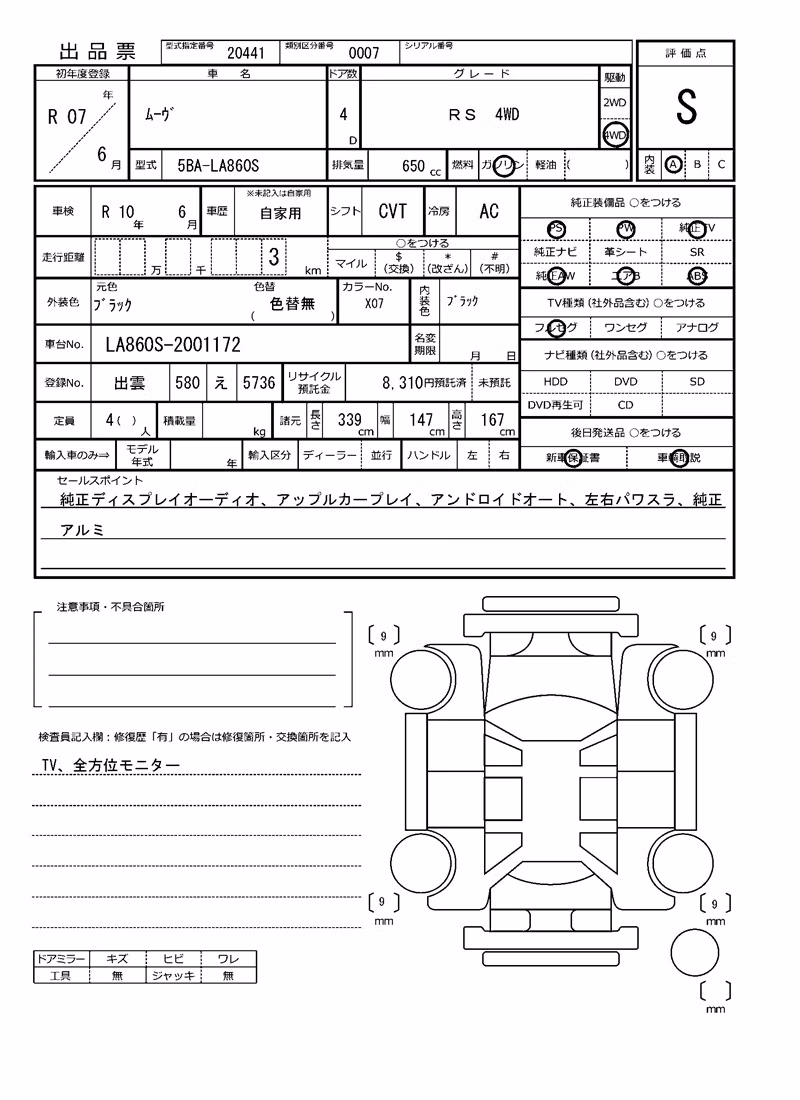 出品票 型式指定番号 20441 類別区分番号 0007 シリアル番号
評価点
初年度登録 車名 ドア数 グレード 駆動
R 07 年 6 月
ムーヴ
4 D
RS 4WD
2WD
4WD
S
型式 5BA-LA860S 排気量 650 cc 燃料 ガソリン 軽油 ( )
内装 A B C
車検 R 10 年 6 月 車歴 ※未記入は自家用 自家用 シフト CVT 冷房 AC
走行距離 万 千 3 km ○をつける
マイル $(交換) *(改ざん) #(不明)
外装色 元色 ブラック 色替 ( 色替無 ) カラーNo. X07 内装色 ブラック
車台No. LA860S-2001172 名変期限 月 日
登録No. 出雲 580 え 5736 リサイクル預託金 8,310円預託済 未預託
定員 4( )人 積載量 kg 諸元 長さ 339 cm 幅 147 cm 高さ 167 cm
輸入車のみ⇒ モデル年式 年 輸入区分 ディーラー 並行 ハンドル 左 右
純正装備品 ○をつける
PS PW 純正TV
純正ナビ 革シート SR
純正AW エアB ABS
TV種類(社外品含む) ○をつける
フルセグ ワンセグ アナログ
ナビ種類(社外品含む) ○をつける
HDD DVD SD
DVD再生可 CD
後日発送品 ○をつける
新車保証書 車輌取説
セールスポイント
純正ディスプレイオーディオ、アップルカープレイ、アンドロイドオート、左右パワスラ、純正
アルミ
注意事項・不具合箇所
検査員記入欄:修復歴「有」の場合は修復箇所・交換箇所を記入
TV、全方位モニター
ドアミラー キズ ヒビ ワレ
工具 無 ジャッキ 無
〔 9 〕 mm
〔 9 〕 mm
〔 9 〕 mm
〔 9 〕 mm
〔 〕 mm